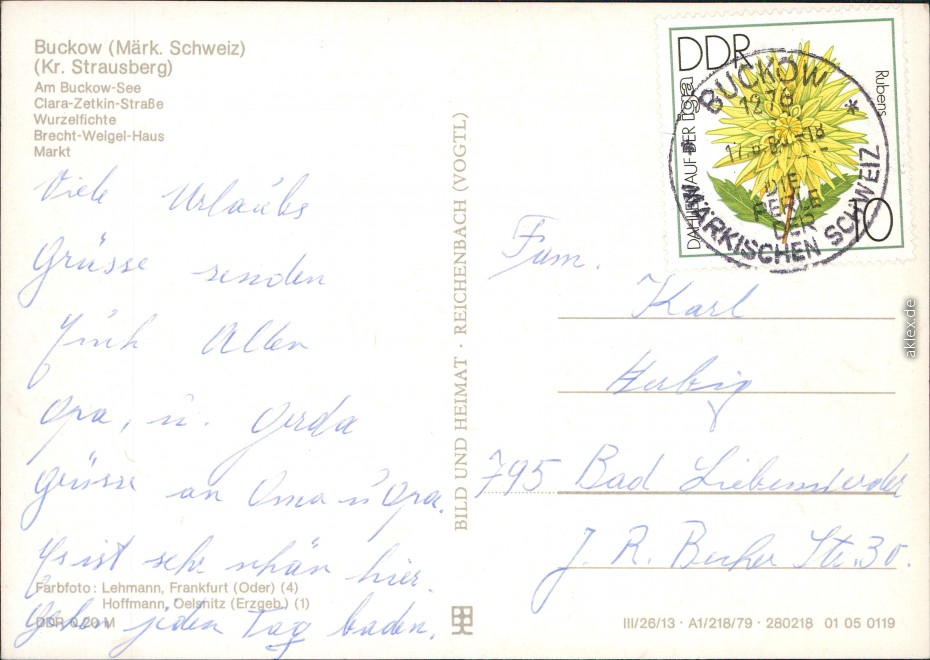 Buckow (Märk. Schweiz)
(Kr. Strausberg)
Am Buckow-See
Clara-Zetkin-Straße
Wurzelfichte
Brecht-Weigel-Haus
Markt
Viele Urlaubs
Grüsse senden
Euch Allen
Opa, u. Gerda
Grüsse an Oma u Opa.
Es ist sehr schön hier.
Gehen jeden Tag baden.
Farbfoto: Lehmann, Frankfurt (Oder) (4)
Hoffmann, Oelsnitz (Erzgeb.) (1)
DDR 0,20 M
BILD UND HEIMAT · REICHENBACH (VOGTL)
DDR
DAHLIEN AUF DER iga
Rubens
10
BUCKOW
1276
DIE
PERLE
DER
MÄRKISCHEN SCHWEIZ
Fam.
Karl
Herbig
795 Bad Liebenwerder
J. R. Becher Str. 30.
III/26/13 · A1/218/79 · 280218 01 05 0119
aklex.de